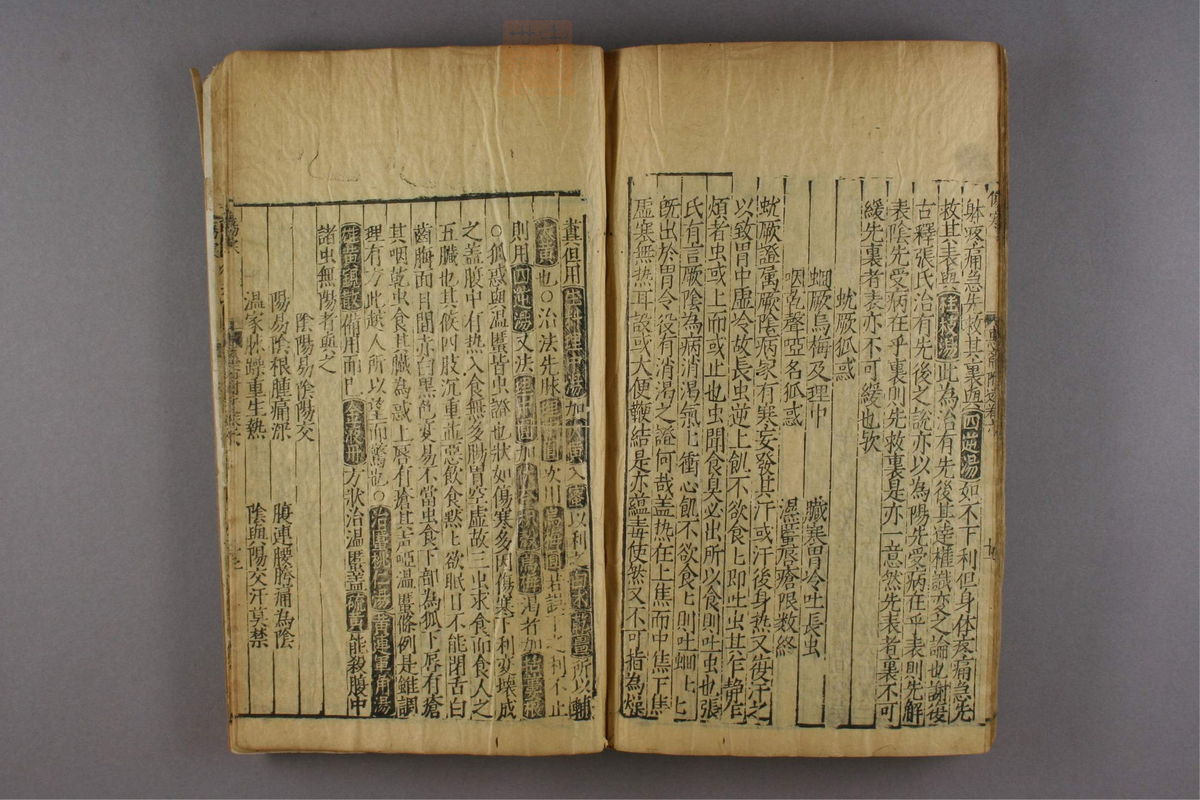 躰疼痛急先救其裏與四逆湯如不下利但身体疼痛急先
救其表與桂枝湯此為治有先後其達權識变之論也謝復
古釋張氏治有先後之說亦以為陽先受病在乎表則先解
表陰先受病在乎裏則先救裏是亦一意然先表者裏不可
緩先裏者表亦不可緩也欤
蚘厥狐惑
蛔厥烏梅及理中 臟寒胃冷吐長虫
咽乾聲啞名狐惑 濕䘌唇瘡限數終
蚘厥證属厥陰病家有寒妄發其汗或汗後身热又復汗之
以致胃中虚冷故長虫逆上飢不欲食上即吐出其乍静乍
煩者虫或上而或止也虫聞食臭必出所以食則吐虫也張
氏有言厥陰為病消渴氣上衝心飢不欲食上則吐蛔上上
既出於胃今役有消渴之證何哉盖热在上焦而中焦下焦
虚寒無热耳設或大便鞕結是亦蘊毒使然又不可指為燥
糞但用生料理中湯加大黄入蜜以利之白术乾薑所以輔
大黄也○治法先昧理中圓次用烏梅圓若誤下之利不止
則用四逆湯又法理中圓加 烏梅渴者加栝蔞根
○狐惑與温䘌皆虫證也状如傷寒多因傷寒下利变壊成
之盖腹中有热入食無多腸胃空虚故三虫求食而食人之
五臓也其候四肢沉重䒷惡飲食黙上欲眠目不能閉舌白
齒晦面目間赤白黑色变易不常虫食下部為狐下唇有瘡
其咽乾虫食其臓為惑上唇有瘡其声啞温䘌條例是錐調
理有方此越人所以望而驚也○治䘌桃仁湯黄連犀角湯
雄黄鋭散俻用而已金液丹方状治温䘌盖硫黄能殺腹中
諸虫無陽者與之
陰陽易陰陽交
陽易陰根腫痛深 腹連腰胯痛為陰
温家脉躁重生热 陰與陽交汗莫禁